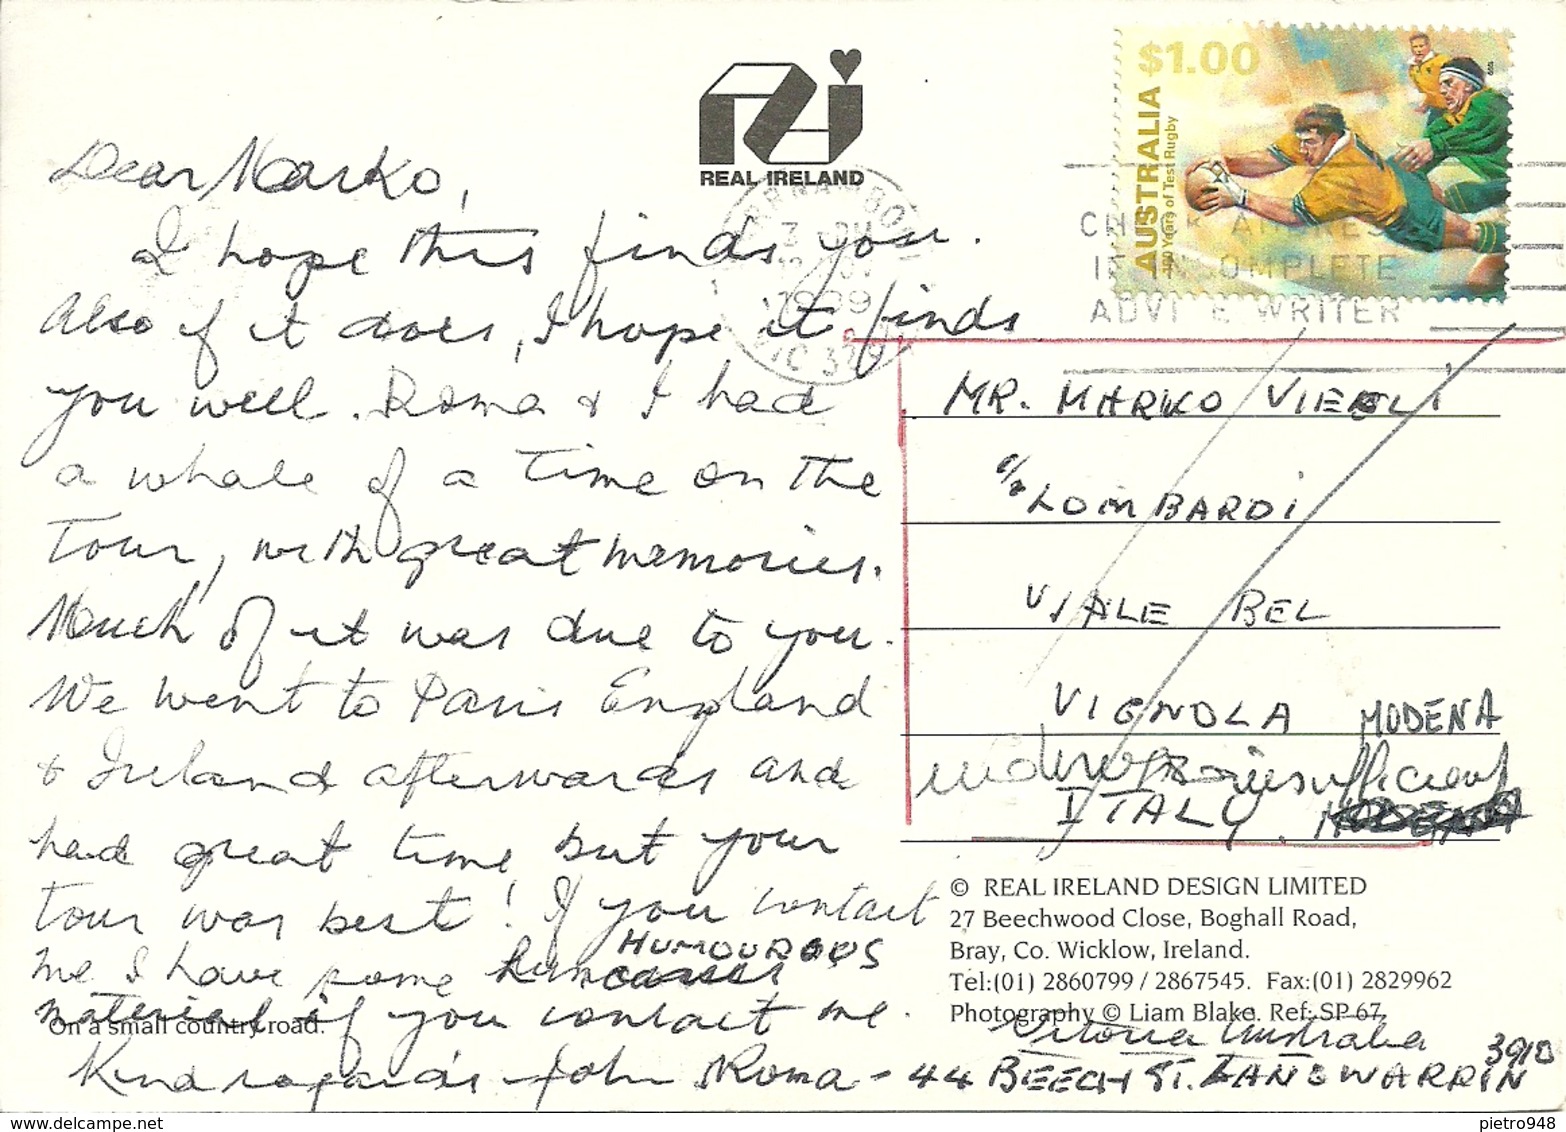 REAL IRELAND
$1.00
AUSTRALIA
100 Years of Test Rugby
CHECK ADDRESS
IF INCOMPLETE
ADVISE WRITER
1999
VIC 3
Dear Marko,
I hope this finds you.
Also if it does, I hope it finds
you well. Roma & I had
a whale of a time on the
Tour, with great memories.
Much of it was due to you.
We went to Paris England
& Ireland afterwards and
had great time but your
tour was best! If you contact
me I have some HUMOUROUS
material if you contact me.
Kind regards John & Roma - 44 BEECH ST. LANGWARRIN
Victoria Australia 3910
On a small country road.
MR. MARKO VIEELI
c/o LOMBARDI
VIALE BEL
VIGNOLA MODENA
insufficient
ITALY.
© REAL IRELAND DESIGN LIMITED
27 Beechwood Close, Boghall Road,
Bray, Co. Wicklow, Ireland.
Tel:(01) 2860799 / 2867545. Fax:(01) 2829962
Photography © Liam Blake. Ref: SP 67.
www.delcampe.net
pietro948